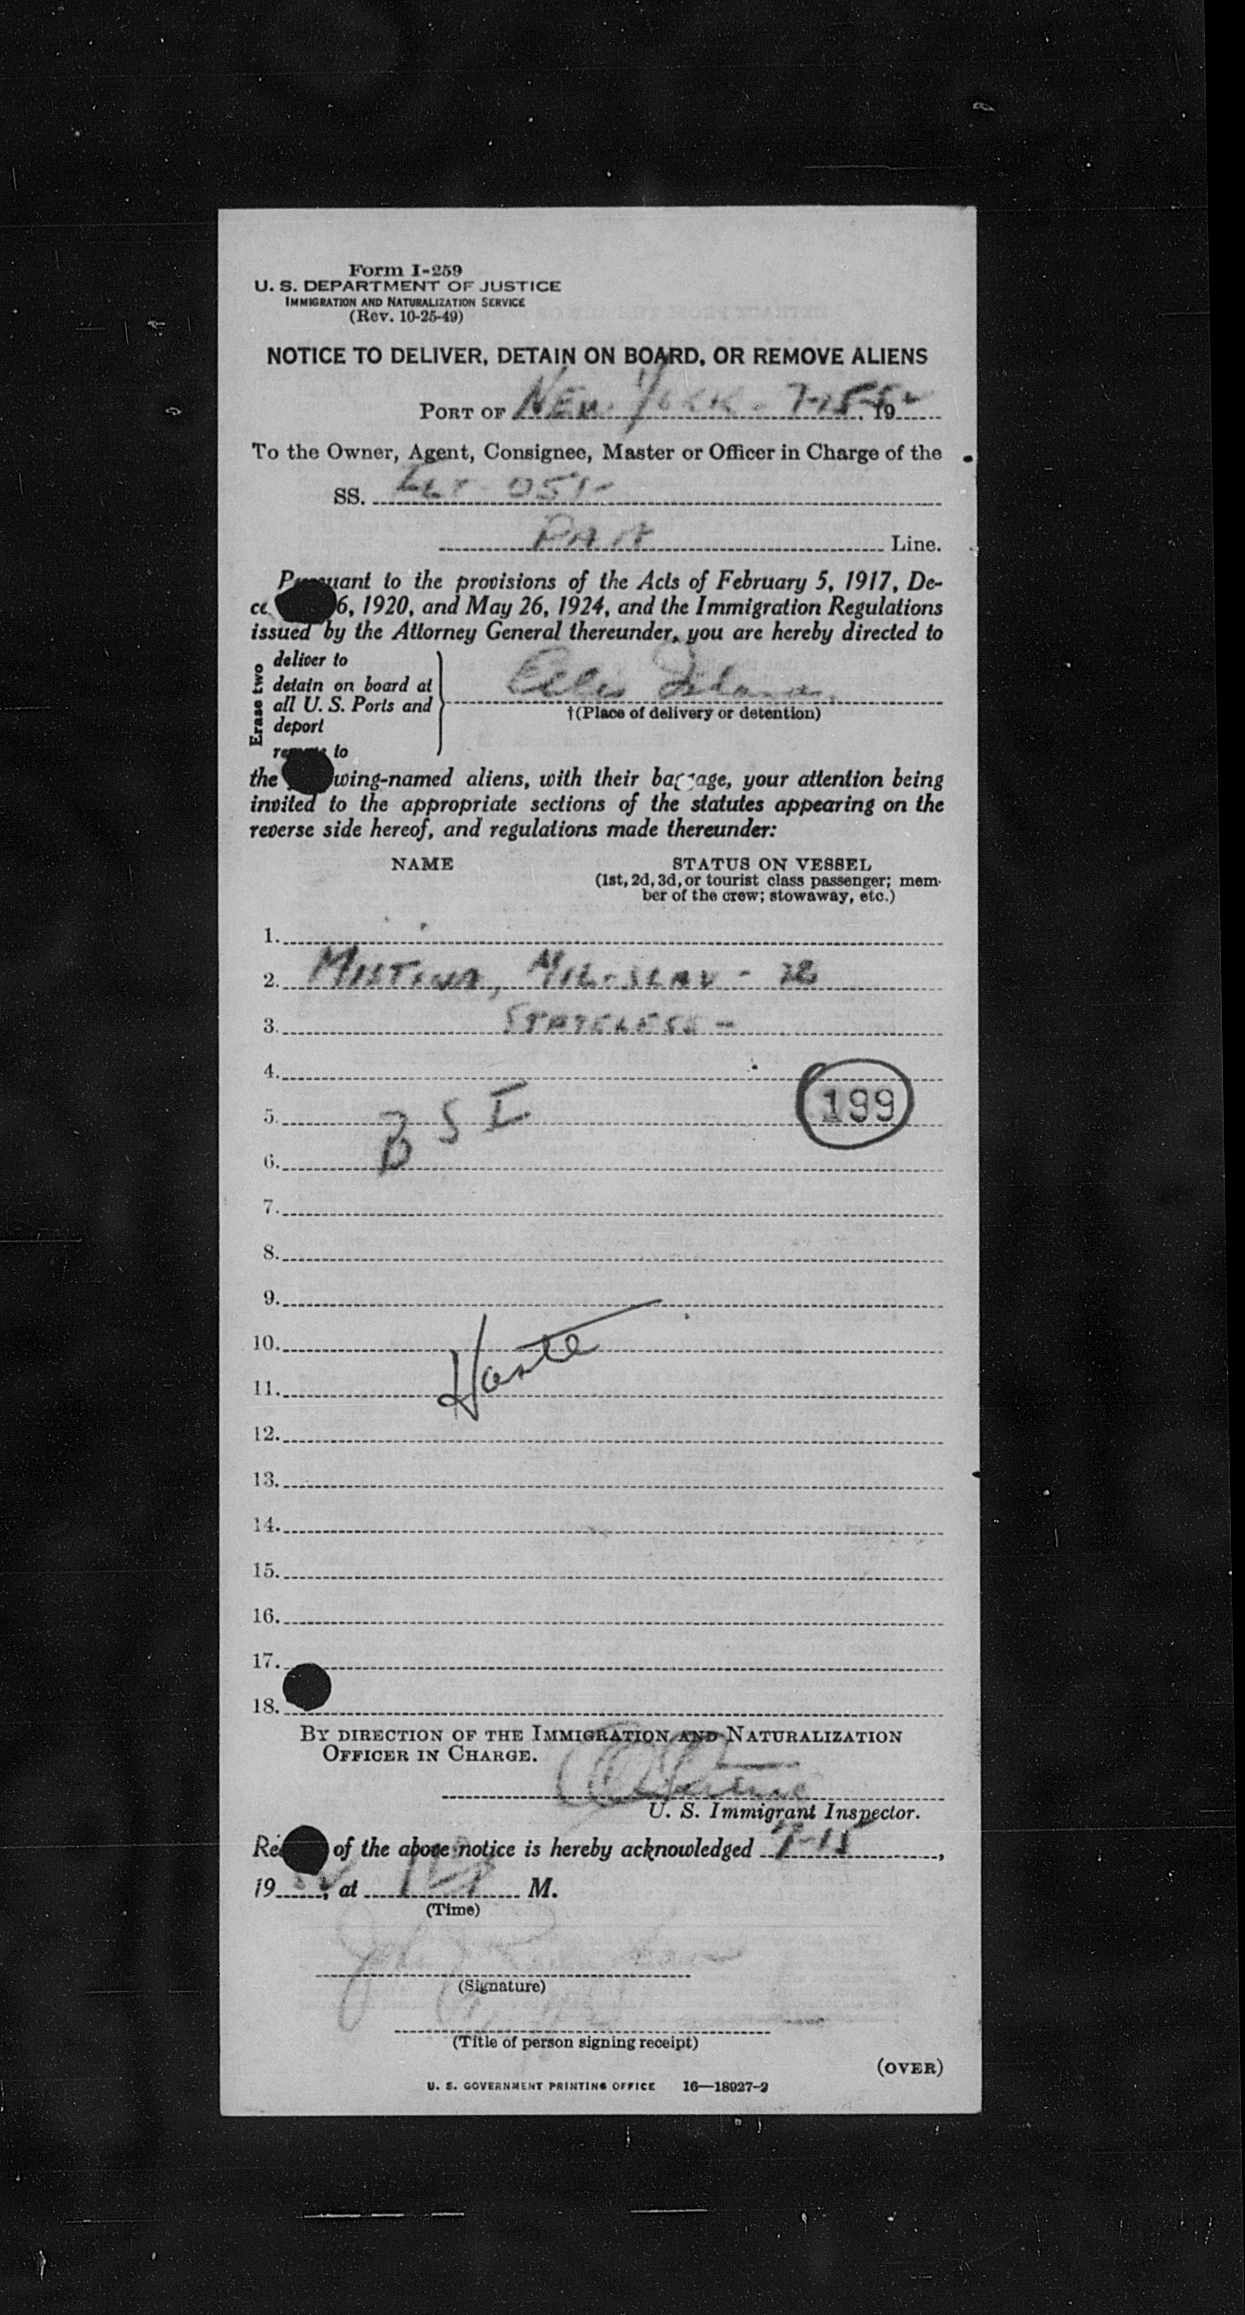 Form I-259
U. S. DEPARTMENT OF JUSTICE
IMMIGRATION AND NATURALIZATION SERVICE
(Rev. 10-25-49)
NOTICE TO DELIVER, DETAIN ON BOARD, OR REMOVE ALIENS
PORT OF NEW YORK - 7-15-52 19
To the Owner, Agent, Consignee, Master or Officer in Charge of the
SS. FLT 051-
PAA Line.
Pursuant to the provisions of the Acts of February 5, 1917, De-
6, 1920, and May 26, 1924, and the Immigration Regulations
issued by the Attorney General thereunder, you are hereby directed to
Erase two
deliver to
detain on board at
all U. S. Ports and
deport
remove to
Ellis Island
†(Place of delivery or detention)
the wing-named aliens, with their baggage, your attention being
invited to the appropriate sections of the statutes appearing on the
reverse side hereof, and regulations made thereunder:
NAME STATUS ON VESSEL
(1st, 2d, 3d, or tourist class passenger; mem-
ber of the crew; stowaway, etc.)
1.
2. MILOSLAV -
3. STATELESS -
4.
199
5. B S I
6.
7.
8.
9.
10.
11.
12.
13.
14.
15.
16.
17.
18.
BY DIRECTION OF THE IMMIGRATION AND NATURALIZATION
OFFICER IN CHARGE.
U. S. Immigrant Inspector.
of the above notice is hereby acknowledged 7-15,
19 52, at M.
(Time)
(Signature)
(Title of person signing receipt)
(OVER)
U. S. GOVERNMENT PRINTING OFFICE 16—18027-2